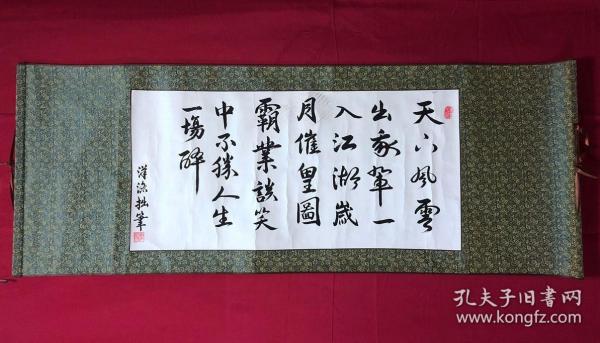 天下风雲
出我輩一
入江湖歲
月催皇圖
霸業談笑
中不勝人生
一場醉
漢濤拙筆
孔夫子旧书网
www.kongfz.com